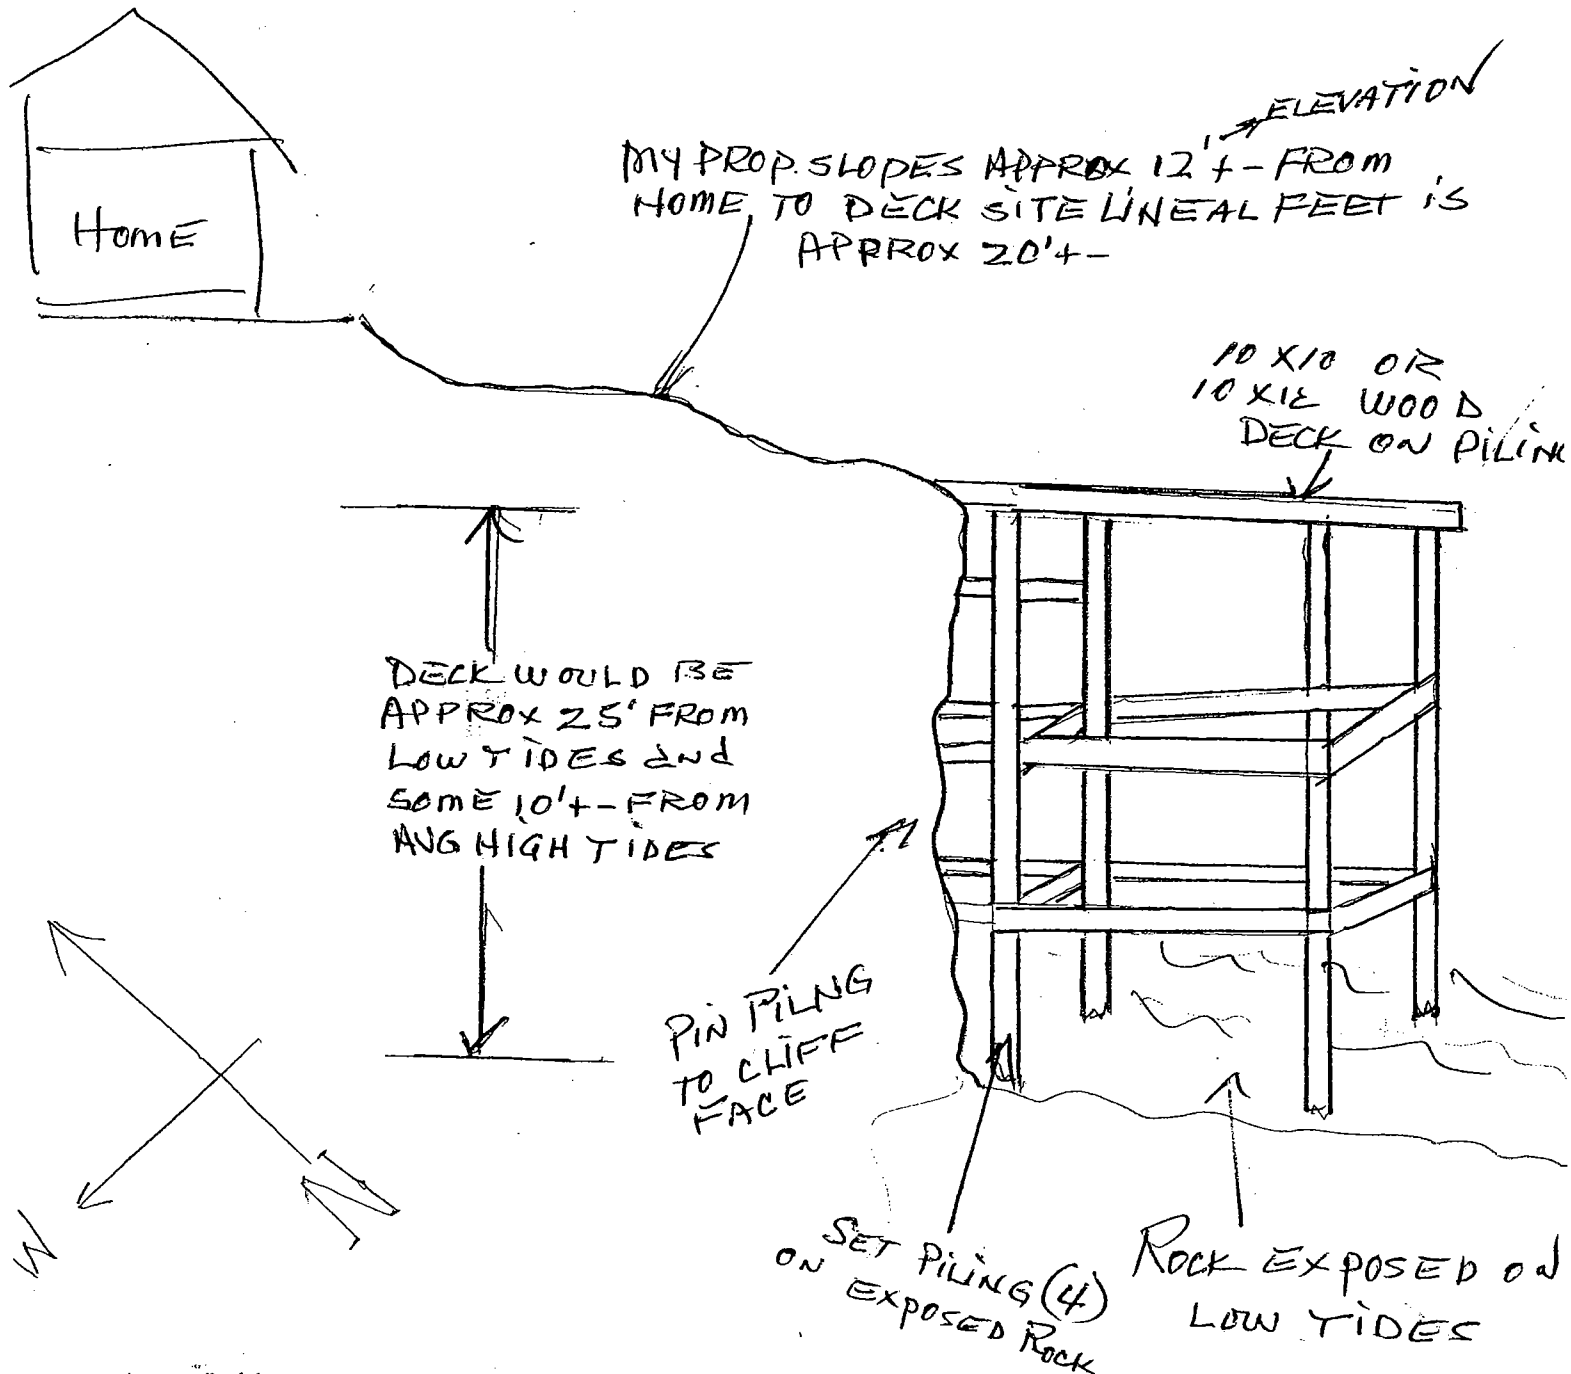 ELEVATION
MY PROP. SLOPES APPROX 12'+- FROM
HOME TO DECK SITE LINEAL FEET is
APPROX 20'+-
HomE
10 X10 OR
10 X12 WOOD
DECK ON PiLiN
DECK WOULD BE
APPROX 25' FROM
LOW TIDES and
SOME 10'+- FROM
AVG HIGH TIDES
PiN PiLNG
TO CLIFF
FACE
N
W
SET PiLiNG (4)
ON EXPOSED ROCK
ROCK EXPOSED ON
LOW TIDES